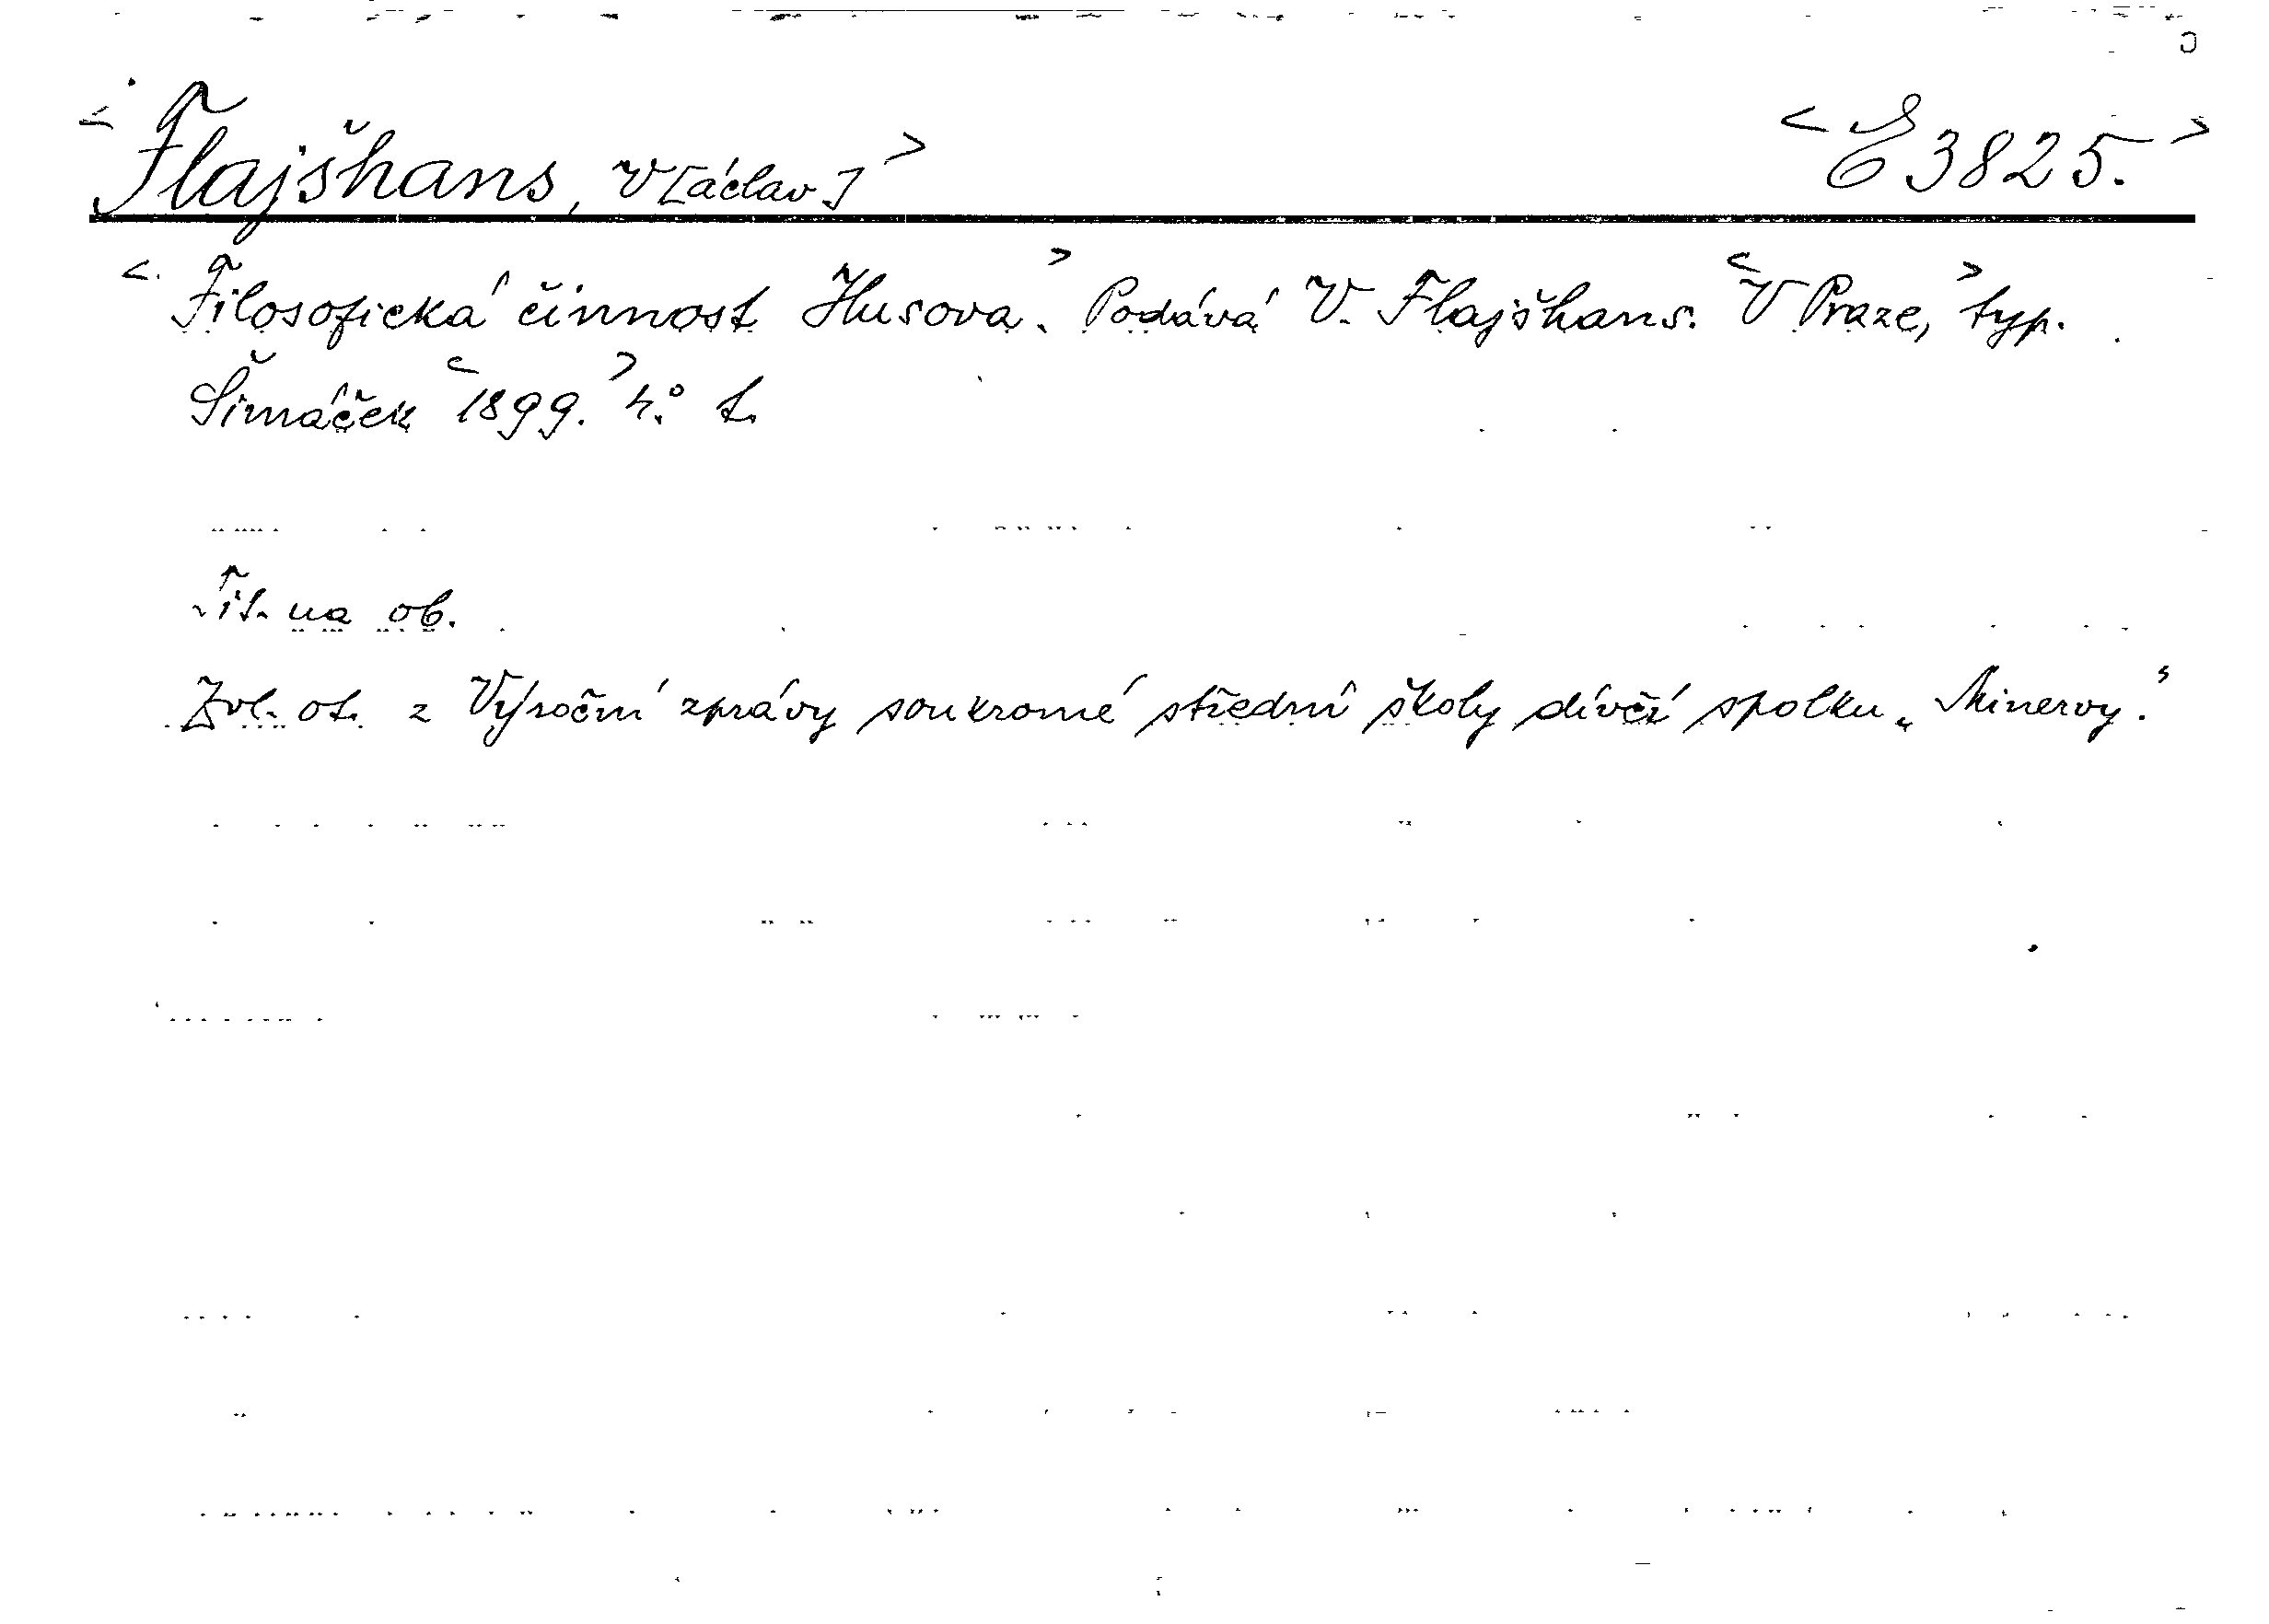 <Flajšhans, V[áclav]> <E 3825.>
<Filosofická činnost Husova.> Podává V. Flajšhans. <V Praze,> typ.
Šimáček <1899.> 4.° t.
Tit. na ob.
Zvl. ot. z Výroční zprávy soukromé střední školy dívčí spolku „Minervy."